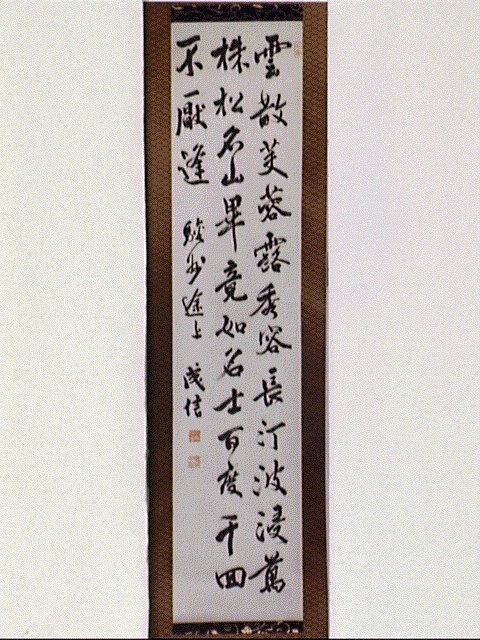 雲散芙蓉露秀容長汀波浸萬
株松名山畢竟如名士百度千回
不厭逢
駿州途上 茂信